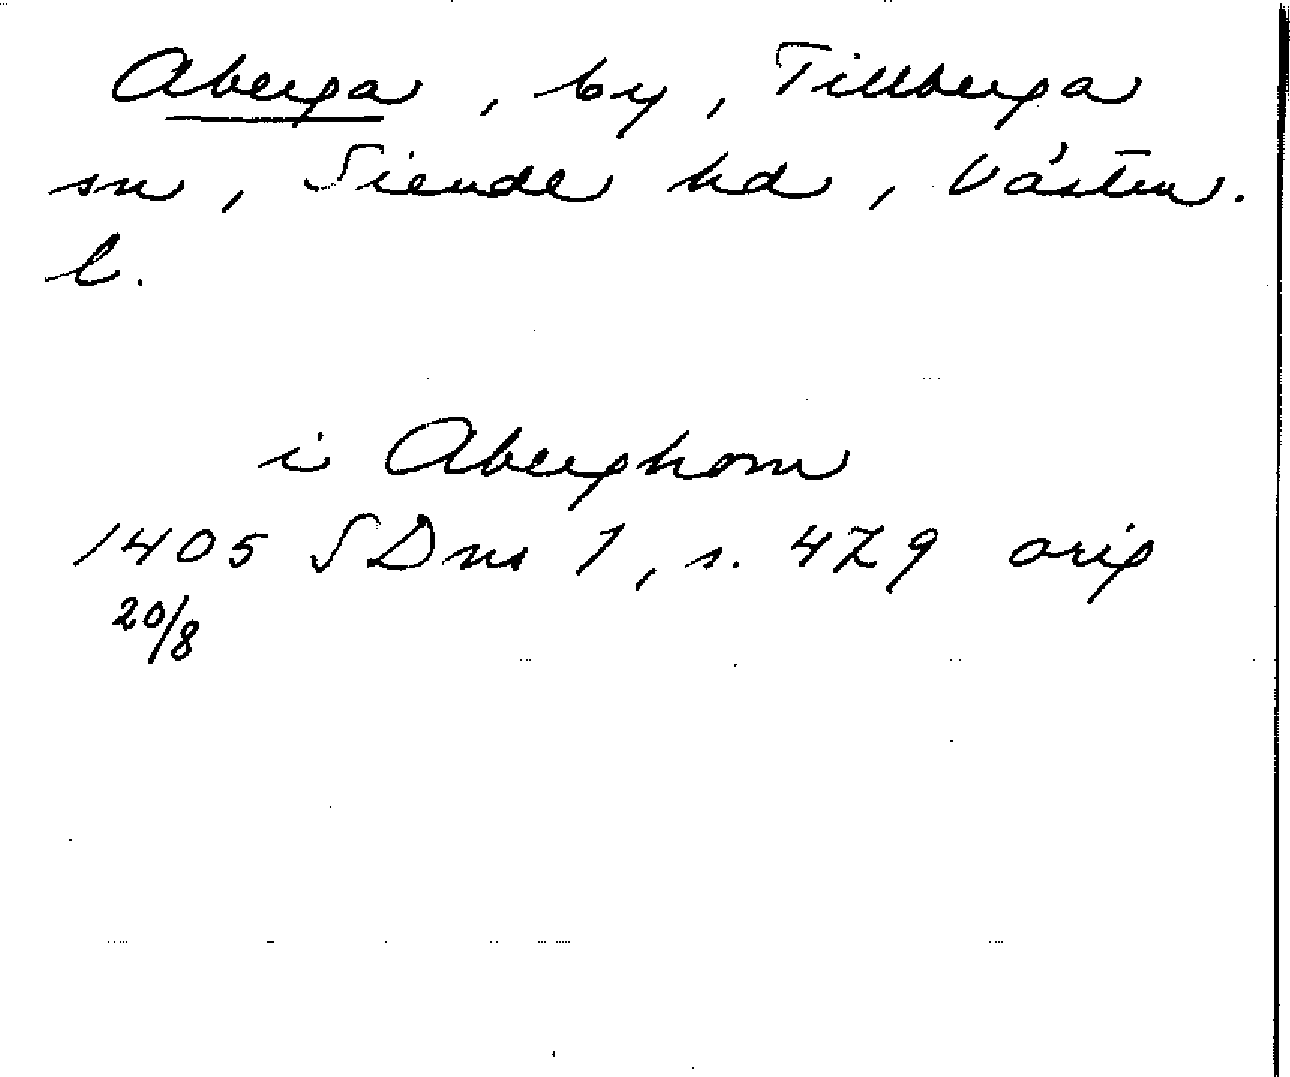 Aberga, by, Tillberga
sn, Siende hd, Västm.
l.
i Aberghom
1405 SDns 1, s. 479 orig
20/8